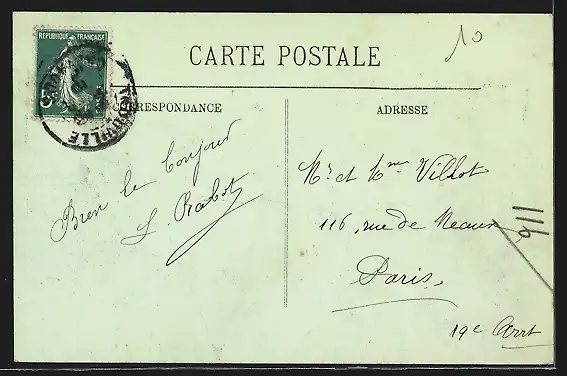 10
REPUBLIQUE FRANÇAISE
CARTE POSTALE
CORRESPONDANCE
ADRESSE
Bien le bonjour
L. Rabot
Mr et Mme Villot
116, rue de Meaux
Paris,
19e Arrt
116